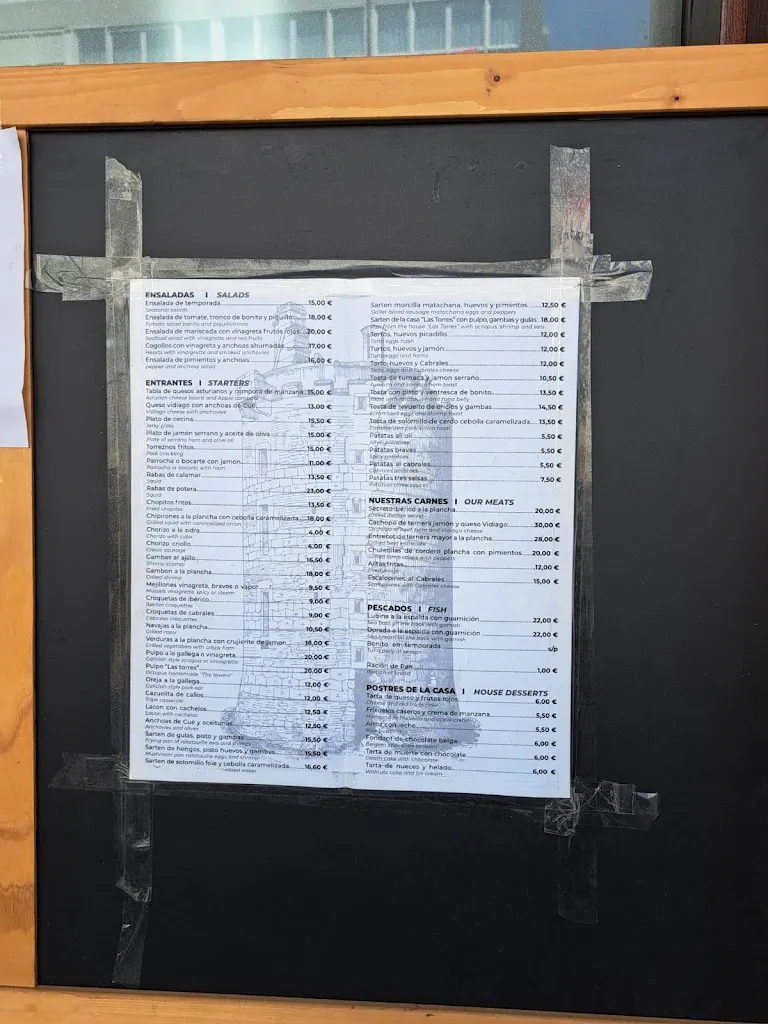 ENSALADAS | SALADS
Ensalada de temporada 15,00 €
Seasonal salads
Ensalada de tomate, tronco de bonito y piquillo 18,00 €
Ensalada de mariscada con vinagreta frutos rojos 20,00 €
Seafood salad with vinaigrette and red fruits
Cogollos con vinagreta y anchoas ahumadas 17,00 €
Hearts with vinaigrette and smoked anchovies
Ensalada de pimientos y anchoas 16,00 €
pepper and anchovy salad
ENTRANTES | STARTERS
Tabla de quesos asturianos y compota de manzana 15,00 €
Asturian cheese board and Apple compote
Queso vidiago con anchoas de Cué 13,00 €
Vidiago cheese with anchovies
Plato de cecina 15,50 €
Jerky plate
Plato de jamón serrano y aceite de oliva 15,00 €
Plate of serrano ham and olive oil
Torreznos fritos 15,00 €
Pork crackling
Parrocha o bocarte con jamón 11,00 €
Parrocha or bocarte with ham
Rabas de calamar 13,50 €
Squid
Rabas de potera 23,00 €
Squid
Chopitos fritos 13,50 €
Fried chopitos
Chipirones a la plancha con cebolla caramelizada 18,00 €
Grilled squid with caramelized onion
Chorizo a la sidra 4,00 €
Chorizo with cider
Chorizo criollo 4,00 €
Creole sausage
Gambas al ajillo 16,50 €
Shrimp scampi
Gambon a la plancha 18,00 €
Grilled shrimp
Mejillones vinagreta, bravos o vapor 9,50 €
Mussels vinaigrette, spicy or steam
Croquetas de ibérico 9,00 €
Iberian croquettes
Croquetas de cabrales 9,00 €
Cabrales croquettes
Navajas a la plancha 10,50 €
Grilled razor
Verduras a la plancha con crujiente de jamon 18,00 €
Grilled vegetables with crispy ham
Pulpo a la gallega o vinagreta 20,00 €
Galician style octopus or vinaigrette
Pulpo "Las torres" 20,00 €
Octopus homemade "The towers"
Oreja a la gallega 12,00 €
Galician style pork ear
Cazuelita de callos 12,00 €
Tripe casserole
Lacon con cachelos 12,50 €
Lacon with cachelos
Anchoas de Cué y aceitunas 12,50 €
Anchovies and olives
Sarten de gulas, pisto y gambas 15,50 €
Sarten de hongos, pisto huevos y gambas 15,50 €
Mushroom pan ratatouille eggs and shrimp
Sarten de solomillo foie y cebolla caramelizada 16,60 €
Sarten morcilla matachana, huevos y pimientos 12,50 €
Skillet blood sausage matachana eggs and peppers
Sarten de la casa "Las Torres" con pulpo, gambas y gulas 18,00 €
Pan from the house "Las Torres" with octopus, shrimp and eels
Tortos, huevos picadillo 12,00 €
Torto eggs hash
Tortos, huevos y jamón 12,00 €
Torto eggs and hams
Torto, huevos y Cabrales 12,00 €
Torto, eggs and Cabrales cheese
Tosta de tumaca y jamon serrano 10,50 €
Tosta con pisto y ventresca de bonito 13,50 €
Tosta de revuelto de oricios y gambas 14,50 €
Tosta de solomillo de cerdo cebolla caramelizada 13,50 €
Patatas ali oli 5,50 €
Patatas bravas 5,50 €
Spicy potatoes
Patatas al cabrales 5,50 €
Cabrales potatoes
Patatas tres salsas 7,50 €
Potatoes three sauces
NUESTRAS CARNES | OUR MEATS
Secreto ibérico a la plancha 20,00 €
Cachopo de ternera jamón y queso Vidiago 30,00 €
Cachopo of beef ham and vidiago cheese
Entrecot de ternera mayor a la plancha 28,00 €
Chuletillas de cordero plancha con pimientos 20,00 €
Alitas fritas 12,00 €
Fried wings
Escalopines al Cabrales 15,00 €
Scalopines with Cabrales cheese
PESCADOS | FISH
Lubina a la espalda con guarnición 22,00 €
Sea bass on the back with garnish
Dorada a le espalda con guarnición 22,00 €
Sea bream on the back with garnish
Bonito en temporada s/p
Ración de Pan 1,00 €
Portion of bread
POSTRES DE LA CASA | HOUSE DESSERTS
Tarta de queso y frutos rojos 6,00 €
Cheese and red fruits cake
Frixuelos caseros y crema de manzana 5,50 €
Arroz con leche 5,50 €
Fondant de chocolate belga 6,00 €
Tarta de muerte con chocolate 6,00 €
Death cake with chocolate
Tarta de nueces y helado 6,00 €
Walnuts cake and ice cream